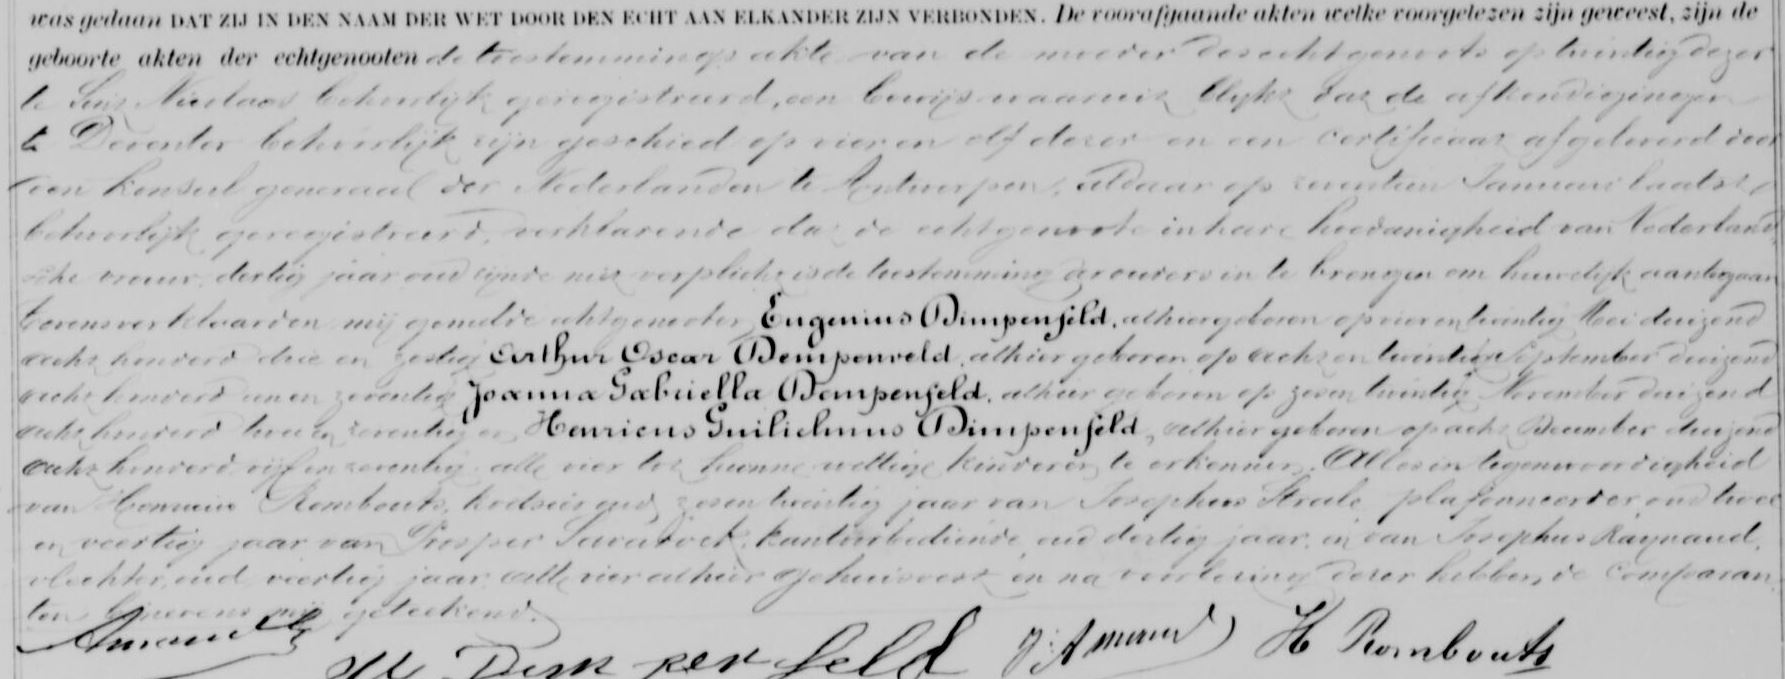 was gedaan DAT ZIJ IN DEN NAAM DER WET DOOR DEN ECHT AAN ELKANDER ZIJN VERBONDEN. De voorafgaande akten welke voorgelezen zijn geweest, zijn de
geboorte akten der echtgenooten de toestemmings akte van de moeder des echtgenoots op twintig dezer
te Sint Nicolaas behoorlijk geregistreerd, een bewijs waaruit blijkt dat de afkondigingen
te Deventer behoorlijk zijn geschied op vier en elf dezer en een certificaat afgeleverd door
den konsul generaal der Nederlanden te Antwerpen, aldaar op zeventien Januari laatst
behoorlijk geregistreerd, verklarende dat de echtgenoote in hare hoedanigheid van Nederland
sche vrouw, dertig jaar oud zijnde niet verplicht is de toestemming der ouders in te brengen om huwelijk aantegaan
tevens verklaarden mij gemelde echtgenooten Eugenius Dimpenfeld, alhier geboren op vier en twintig Mei duizend
acht honderd drie en zestig Arthur Oscar Dempenveld, alhier geboren op acht en twintig September duizend
acht honderd een en zeventig Joanna Gabriella Dempenfeld, alhier geboren op zeven twintig November duizend
acht honderd twee en zeventig en Henricus Guilielmus Dimpenfeld, alhier geboren op acht December duizend
acht honderd vijf en zeventig alle vier tot hunne wettige kinderen te erkennen. Alles in tegenwoordigheid
van Henricus Rombouts, koetsier oud zeven twintig jaar van Josephus Straele plafonneerder oud twee
en veertig jaar van Prosper kantoorbediende, oud dertig jaar, en van Josephus Raynaud,
vlechter, oud veertig jaar, alle vier alhier gehuisvest en na voorlezing dezer hebben de comparan
ten benevens mij geteekend.
Dempenfeld J. Amand H Rombouts